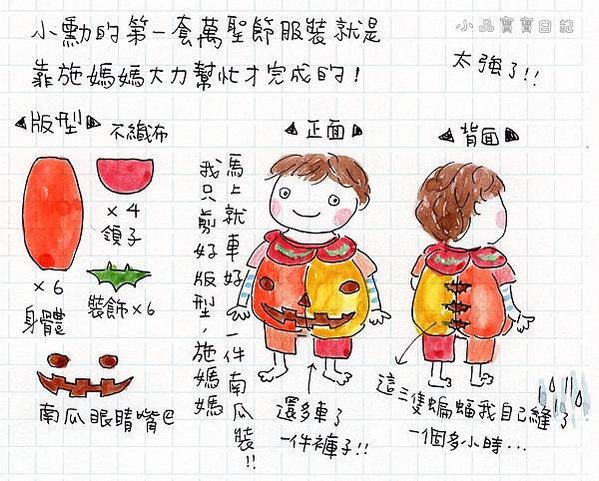 小勳的第一套萬聖節服裝就是
靠施媽媽大力幫忙才完成的!
小品寶寶日記
太強了!!
版型
不織布
x6
身體
x4
領子
裝飾x6
南瓜眼睛嘴巴
我只剪好版型,施媽媽
馬上就車好一件南瓜裝!!
正面
還多車了
一件褲子!!
背面
這三隻蝙蝠我自己縫了
一個多小時...